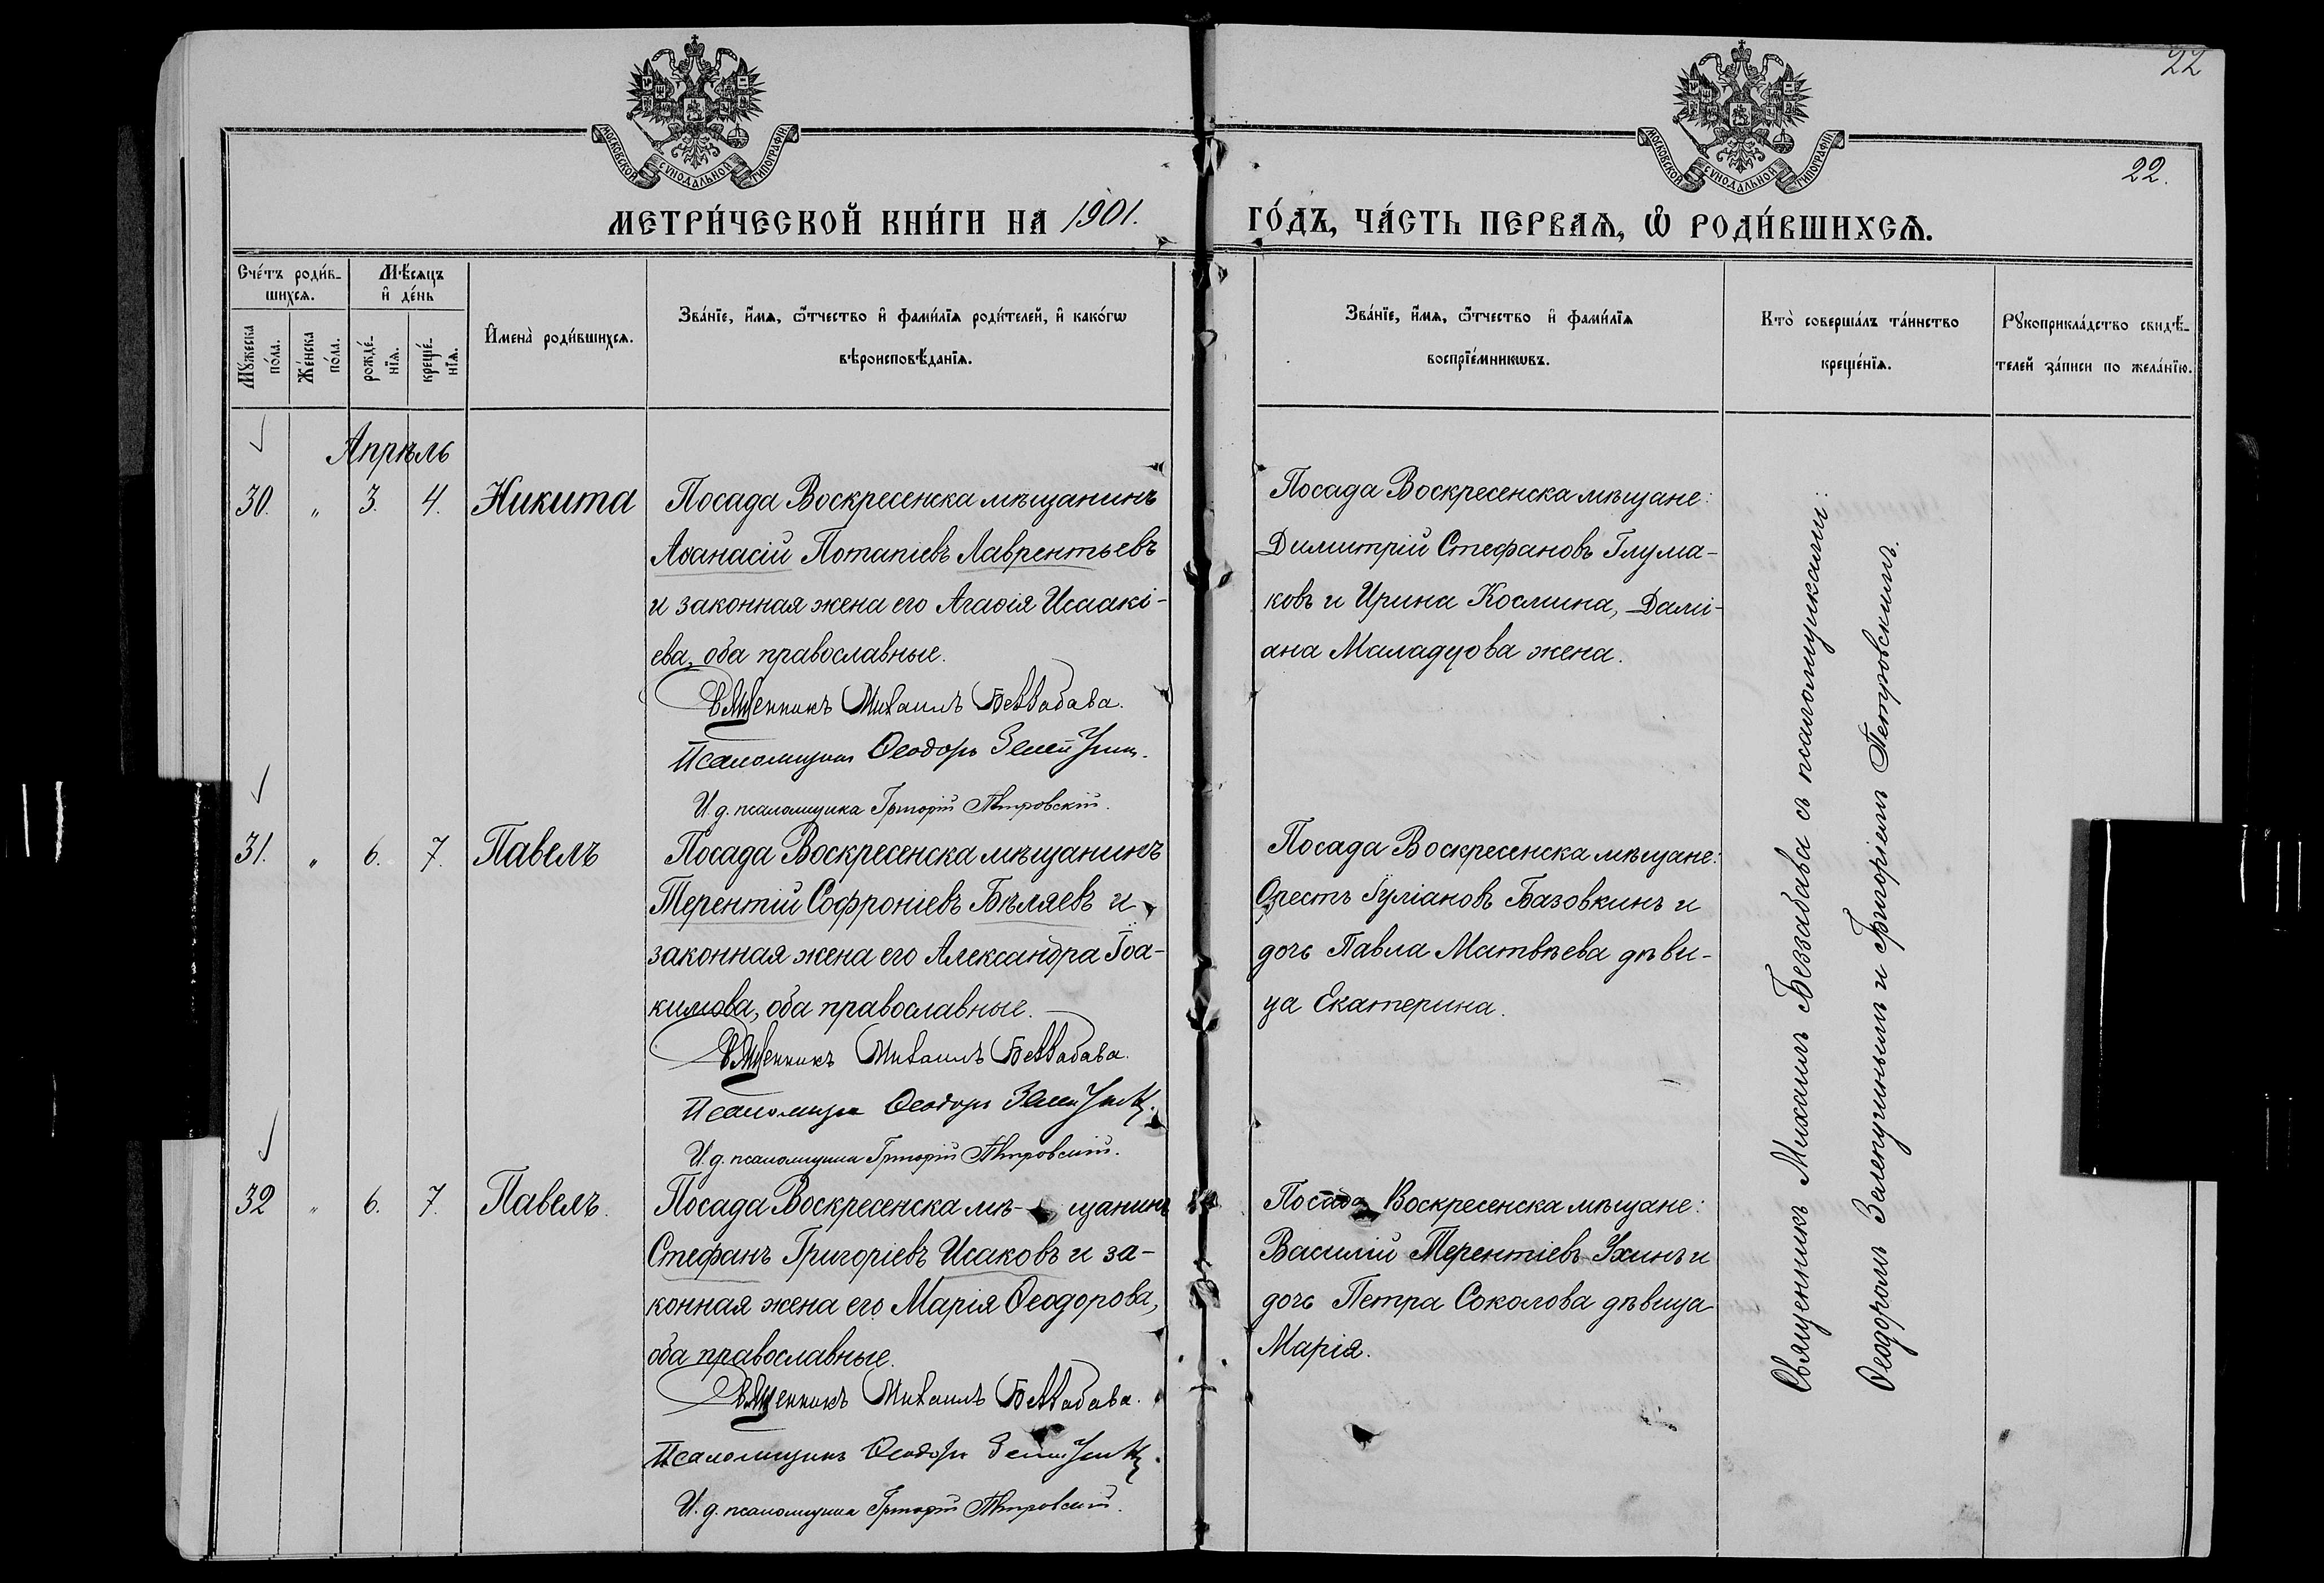 22
МОСКОВСКОЙ СѴНОДАЛЬНОЙ ТИПОГРАФІИ
МОСКОВСКОЙ СѴНОДАЛЬНОЙ ТИПОГРАФІИ
22.
МЕТРИ́ЧЕСКОЙ КНИ́ГИ НА 1901. ГО́ДЪ, ЧА́СТЬ ПЕРВАѦ, Ѡ҆ РОДИ́ВШИХСѦ.
Сче́тъ роди́в-
шихсѧ.
Мꙋ́жеска
по́ла.
Же́нска
по́ла.
Мѣ́сѧцъ
и҆ де́нь
рожде́-
нїѧ.
креще́-
нїѧ.
И҆мена̀ роди́вшихсѧ.
Зва́нїе, и҆́мѧ, ѻ҆́тчество и҆ фами́лїѧ роди́телей, и҆ како́гѡ
вѣроисповѣ́данїѧ.
Зва́нїе, и҆́мѧ, ѻ҆́тчество и҆ фами́лїѧ
воспрїе́мникѡвъ.
Кто̀ соверша́лъ та́инство
креще́нїѧ.
Рꙋкоприкла́дство свидѣ́-
телей за́писи по жела́нїю.
Апрѣль
30. „ 3. 4. Никита
Посада Воскресенска мѣщанинъ
Аѳанасій Потапіевъ Лаврентьевъ
и законная жена его Агаѳія Исаакі-
ева, оба православные.
Священникъ Михаилъ Беззабава.
Псаломщикъ Ѳеодоръ
И. д. псаломщика Григорій Петровскій.
Посада Воскресенска мѣщане:
Димитрій Стефановъ Глума-
ковъ и Ирина Космина, Дамі-
ана Маладцова жена.
31. „ 6. 7. Павелъ
Посада Воскресенска мѣщанинъ
Терентій Софроніевъ Бѣляевъ и
законная жена его Александра Іоа-
кимова, оба православные.
Священникъ Михаилъ Беззабава.
Псаломщикъ Ѳеодоръ
И. д. псаломщика Григорій Петровскій.
Посада Воскресенска мѣщане:
Орестъ Іуліановъ Базовкинъ и
дочь Павла Матвѣева дѣви-
ца Екатерина.
32 „ 6. 7. Павелъ.
Посада Воскресенска мѣ- щанинъ
Стефанъ Григоріевъ Исаковъ и за-
конная жена его Марія Ѳеодорова,
оба православные.
Священникъ Михаилъ Беззабава.
Псаломщикъ Ѳеодоръ
И. д. псаломщика Григорій Петровскій.
Посада Воскресенска мѣщане:
Василій Терентіевъ Ухинъ и
дочь Петра Соколова дѣвица
Марія.
Священникъ Михаилъ Беззабава съ псаломщиками:
Ѳеодоромъ Залепугинымъ и Григоріемъ Петровскимъ.